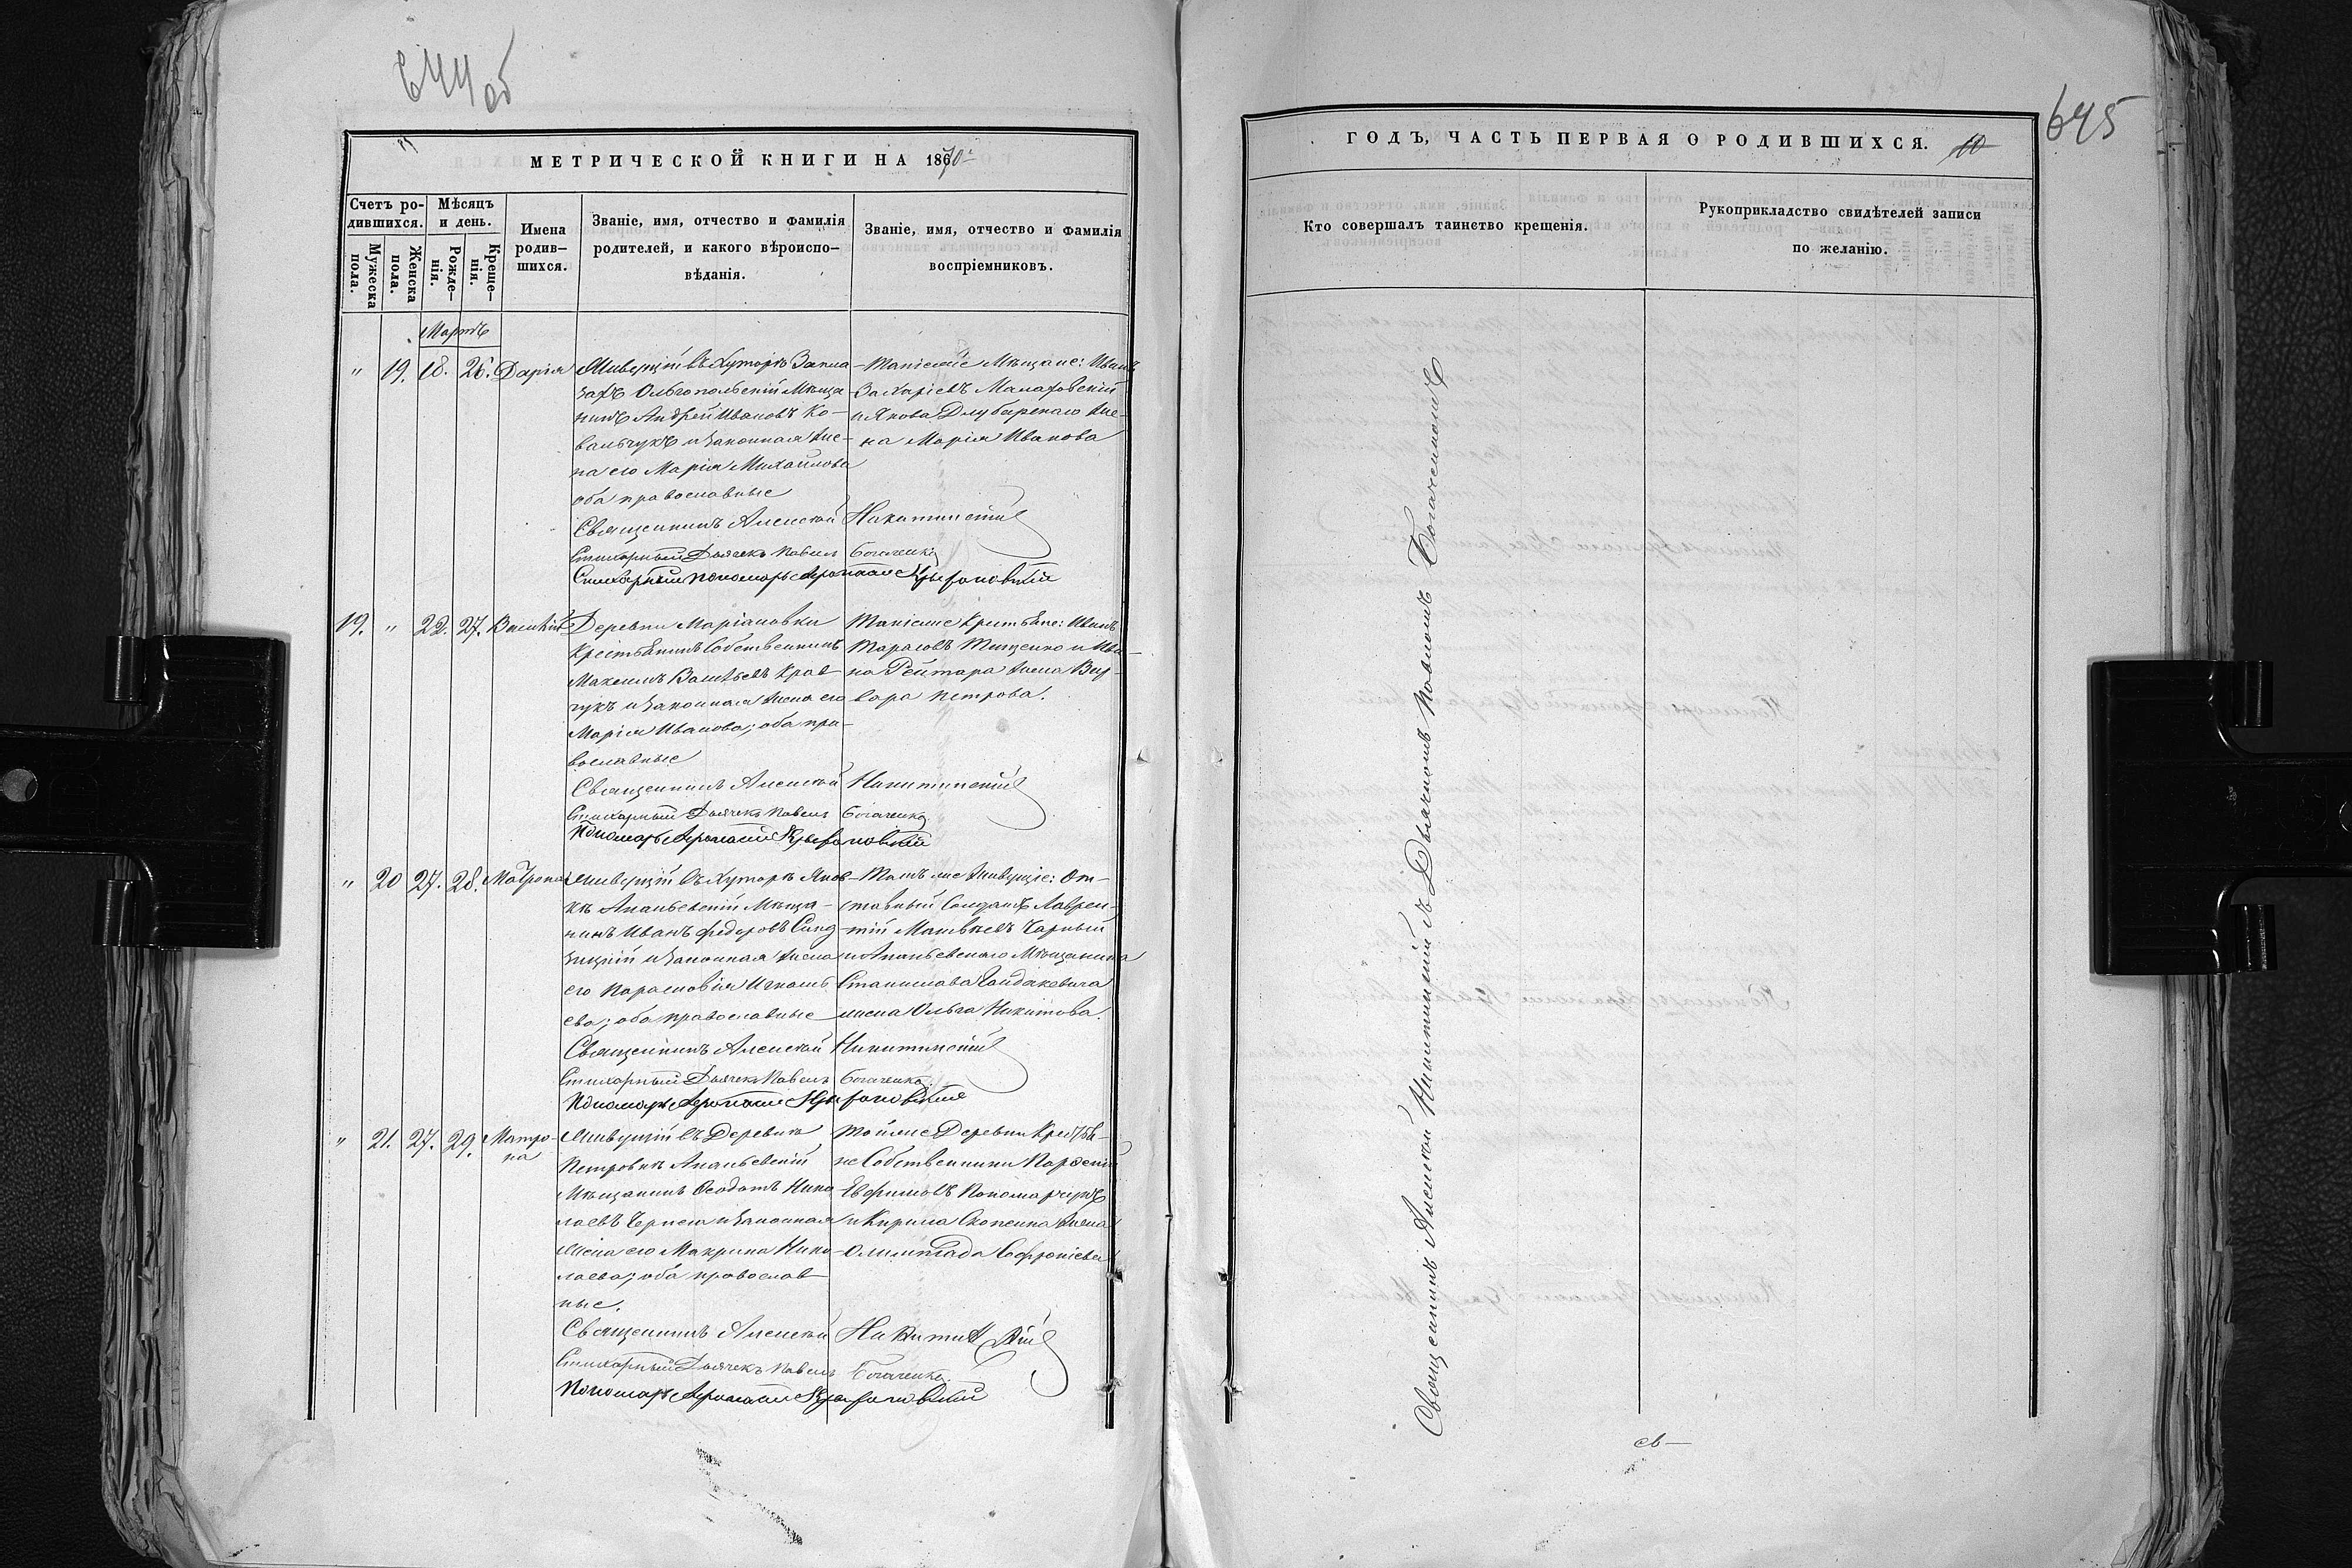 644 об
МЕТРИЧЕСКОЙ КНИГИ НА 1870
Счетъ ро-
дившихся.
Мужеска
пола.
Женска
пола.
Мѣсяцъ
и день.
Рожде-
нія.
Креще-
нія.
Имена
родив-
шихся.
Званіе, имя, отчество и фамилія
родителей, и какого вѣроиспо-
вѣданія.
Званіе, имя, отчество и фамилія
воспріемниковъ.
Мартъ
" 19. 18. 26. Дарія
Живущій въ Хуторѣ
Ольгопольскій Мѣща-
нинъ Андрей Ивановъ Ко-
вальчукъ и законная же-
на его Марія Михайлова
оба православные
Таніеже Мѣщане: Иванъ
Захаріевъ
и Якова женa
Марія Иванова
Священникъ Алексѣй Никитинскій
Стихарный Дьячекъ Павелъ Богаченко
Стихарный пономарь
19. " 22. 27. Василій
Деревни Маріановки
Крестьянинъ Собственникъ
Максимъ Васильевъ Крав-
чукъ и законная жена его
Марія Иванова; оба пра-
вославные
Таніеже Крестьяне: Иванъ
Тарасовъ Тищенко и Ива-
на Рейтара жена Вар-
вара Петрова.
Священникъ Алексѣй Никитинскій
Стихарный Дьячекъ Павелъ Богаченко
Пономарь
" 20 27. 28. Матрона
Живущій въ Хуторѣ
Ананьевскій Мѣща-
нинъ Иванъ Федоровъ
и законная жена
его Парасковія Игнать-
ева; оба православные
Тамъ же живущіе: От-
ставный Солдатъ Лаврен-
тій Матвѣевъ Чарный
и Ананьевскаго Мѣщанина
Станислава
жена Ольга Никитова.
Священникъ Алексѣй Никитинскій
Стихарный Дьячекъ Павелъ Богаченко
Пономарь
" 21. 27. 29. Матро-
на
Живущій въ Деревнѣ
Петровкѣ Ананьевскій
Мѣщанинъ Ѳеодотъ Нико-
лаевъ и законная
жена его Макрина Нико-
лаева; оба православ-
ные.
Тойже Деревни Крестья-
не Собственники Парѳеній
Евфимовъ Пономарчукъ
и Кирила жена
Олимпіада Софроніева
Священникъ Алексѣй Никитинскій
Стихарный Дьячекъ Павелъ Богаченко
Пономарь
645
ГОДЪ, ЧАСТЬ ПЕРВАЯ О РОДИВШИХСЯ. 10
Кто совершалъ таинство крещенія.
Рукоприкладство свидѣтелей записи
по желанію.
Священникъ Алексѣй Никитинскій съ Дьячкомъ Павломъ Богаченкомъ
св—